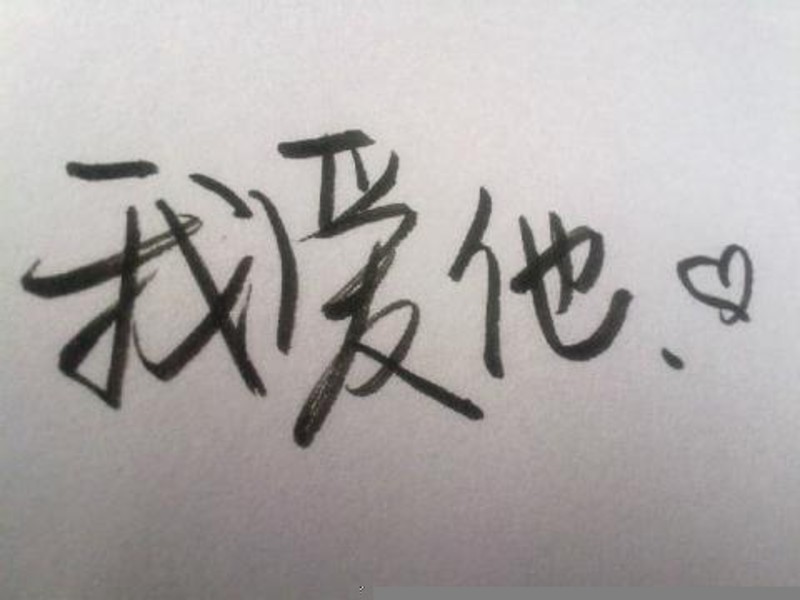 我爱他.♡